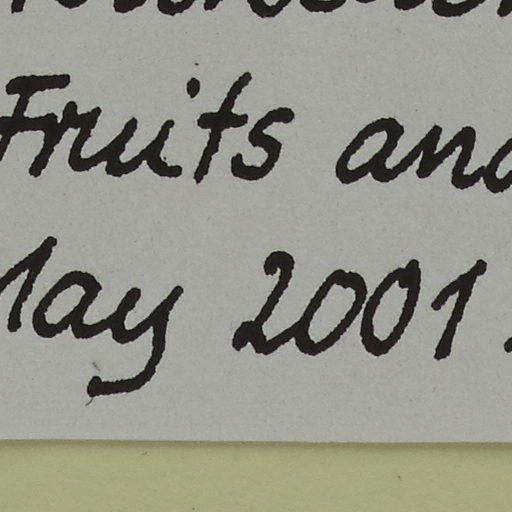 Fruits and
May 2001.